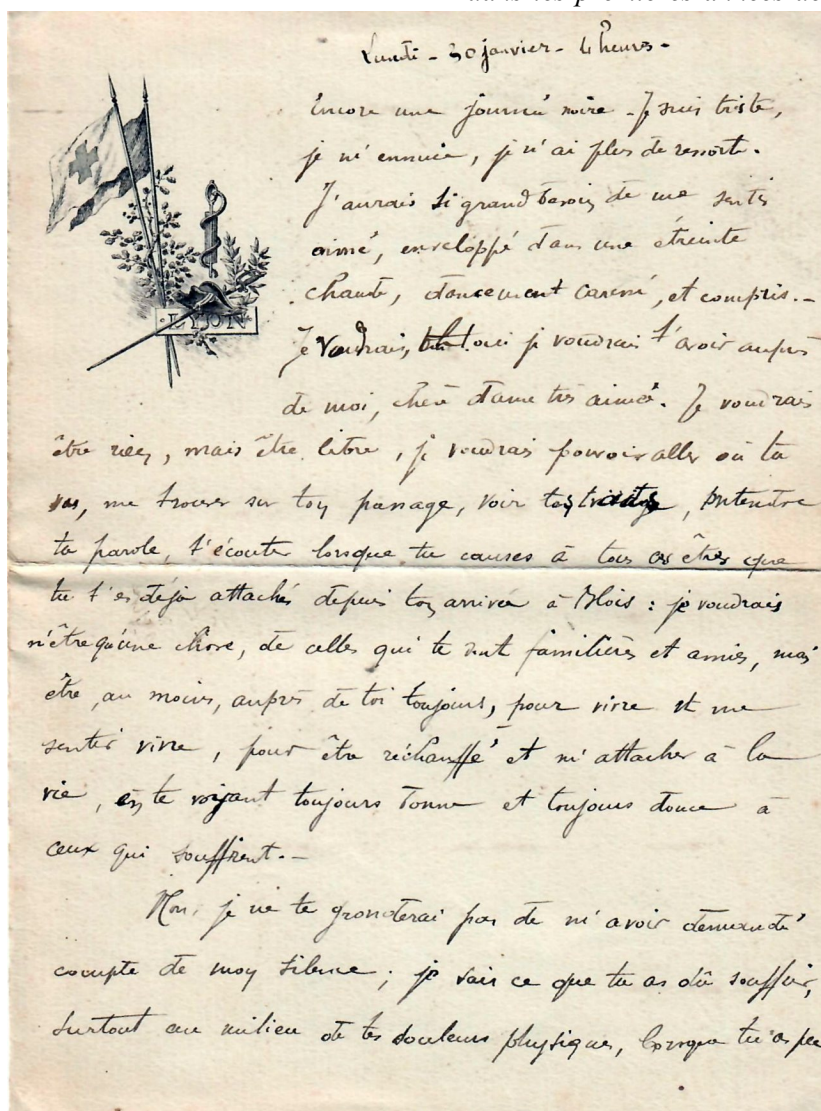 dans les premières années de
Lundi - 30 janvier - 4 heures -
Encore une journée noire - Je suis triste,
je m'ennuie, je n'ai plus de ressorts.
J'aurais si grand besoin de me sentir
aimé, enveloppé dans une étreinte
chaude, doucement caressé, et compris. -
LYON
Je voudrais, oui je voudrais t'avoir auprès
de moi, chère dame très aimée. Je voudrais
être rien, mais être libre, je voudrais pouvoir aller où tu
vas, me trouver sur ton passage, voir, entendre
ta parole, t'écouter lorsque tu causes à tous ces êtres que
tu t'es déjà attachés depuis ton arrivée à Blois : je voudrais
n'être qu'une chose, de celles qui te sont familières et amies, mais
être, au moins, auprès de toi toujours, pour vivre et me
sentir vivre, pour être réchauffé et m'attacher à la
vie, en te voyant toujours bonne et toujours douce à
ceux qui souffrent. -
Non, je ne te gronderai pas de m'avoir demandé
compte de mon silence ; je sais ce que tu as dû souffrir,
surtout au milieu de tes douleurs physiques, lorsque tu as